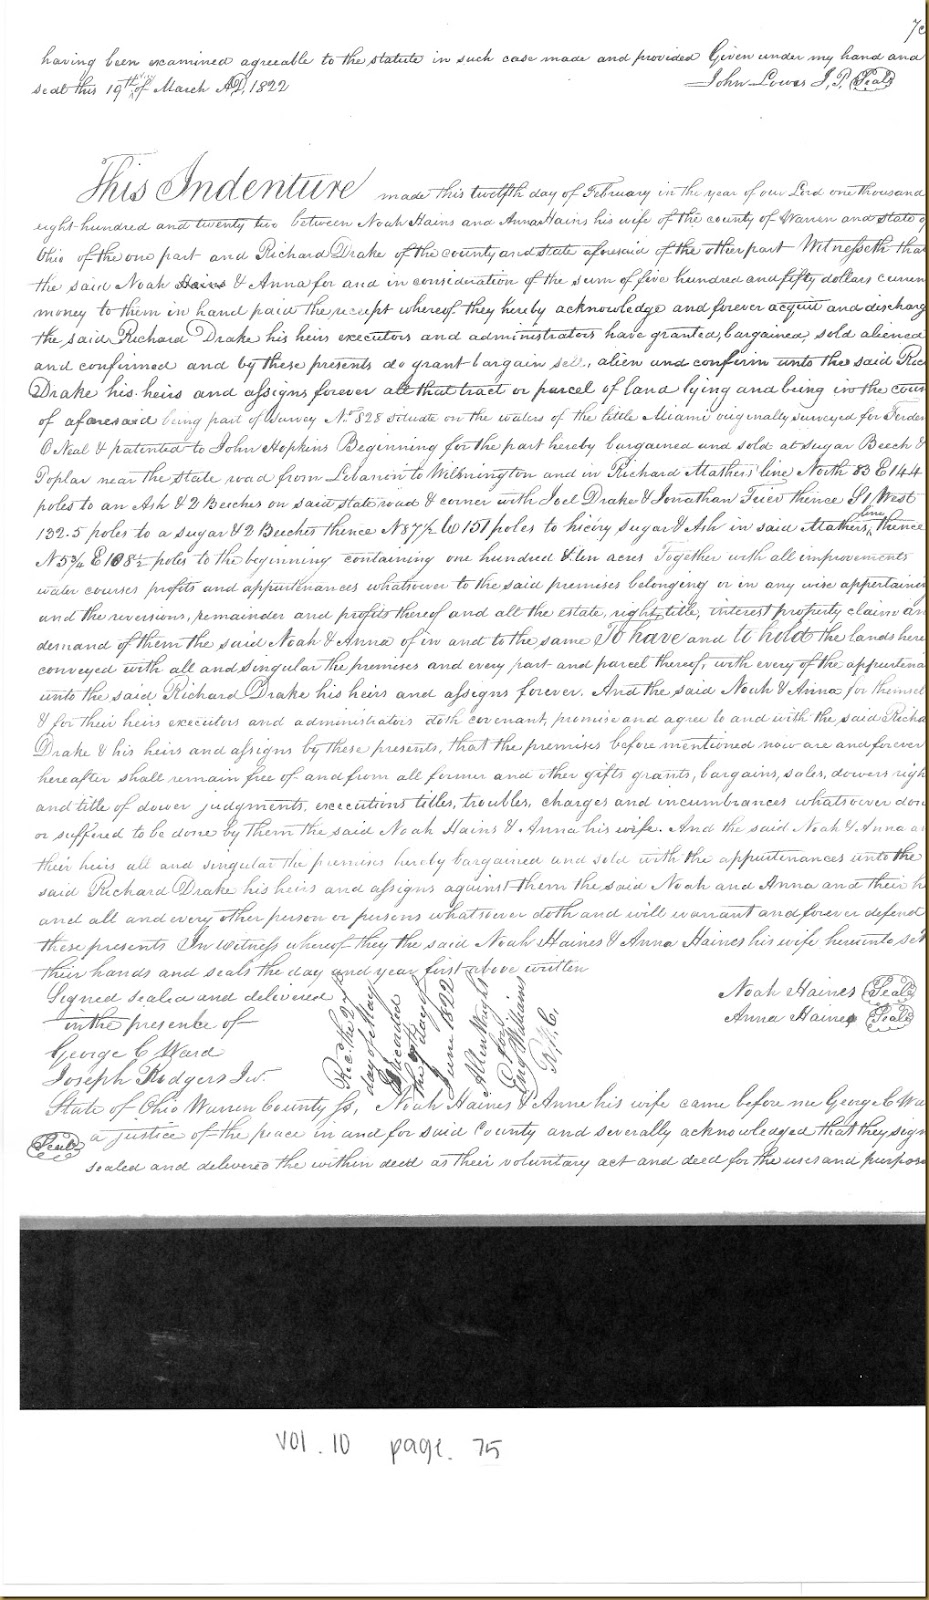 7
having been examined agreeable to the statute in such case made and provided Given under my hand and
seal this 19th day of March AD, 1822 John Lowes J, P, Seal
This Indenture made this twelfth day of February in the year of our Lord one thousand
eight hundred and twenty two between Noah Hains and Anna Hains his wife of the county of Warren and state of
Ohio of the one part and Richard Drake of the county and state aforesaid of the other part Witnesseth that
the said Noah Hains & Anna for and in consideration of the sum of five hundred and fifty dollars curren
money to them in hand paid the receipt whereof they hereby acknowledge and forever acquit and discharg
the said Richard Drake his heirs executors and administrators have granted, bargained, sold aliened
and confirmed and by these presents do grant bargain sell, alien and confirm unto the said Ric
Drake his heirs and assigns forever all that tract or parcel of land lying and being in the coun
of aforesaid being part of Survey No 828 situate on the waters of the little Miami originally surveyed for Ferdin
O Neal & patented to John Hopkins Beginning for the part hereby bargained and sold at Sugar Beech &
Poplar near the State road from Lebanon to Wilmington and in Richard Mathers' line North 83 E 144
poles to an Ash & 2 Beeches on said state road & corner with Joel Drake & Jonathan thence S1/ West
132.5 poles to a sugar & 2 Beeches thence N 87½ W 151 poles to hicory Sugar & Ash in said Mathers line, thence
N 5¾ E 108½ poles to the beginning containing one hundred & ten acres Together with all improvements
water courses profits and appurtenances whatsoever to the said premises belonging or in any wise appertaining
and the reversions, remainder and profits thereof and all the estate, right, title, interest property claim an
demand of them the said Noah & Anna of in and to the same To have and to hold the lands here
conveyed with all and singular the premises and every part and parcel thereof, with every of the appurtena
unto the said Richard Drake his heirs and assigns forever. And the said Noah & Anna for themsel
& for their heirs executors and administrators doth covenant, promise and agree to and with the said Richa
Drake & his heirs and assigns by these presents, that the premises before mentioned now are and forever
hereafter shall remain free of and from all former and other gifts grants, bargains, sales, dowers righ
and title of dower judgments, executions titles, troubles, charges and incumbrances whatsoever don
or suffered to be done by them the said Noah Hains & Anna his wife. And the said Noah & Anna a
their heirs all and singular the premises hereby bargained and sold with the appurtenances unto the
said Richard Drake his heirs and assigns against them the said Noah and Anna and their h
and all and every other person or persons whatsoever doth and will warrant and forever defend
these presents In witness whereof they the said Noah Haines & Anna Haines his wife hereunto set
their hands and seals the day and year first above written
Signed sealed and delivered Noah Haines Seal
in the presence of Anna Haines Seal
George C Ward
Joseph Rodgers Jur.
Rec. the 27th
day of May
Recorded
the 1st day of
June 1822
Allen Wright
for
Eno Williams
R. W. C.
State of Ohio Warren County Ss, Noah Haines & Anne his wife came before me George C Wa
Seal a justice of the peace in and for said County and severally acknowledged that they sign
sealed and delivered the within deed as their voluntary act and deed for the uses and purpose
vol . 10 page. 75